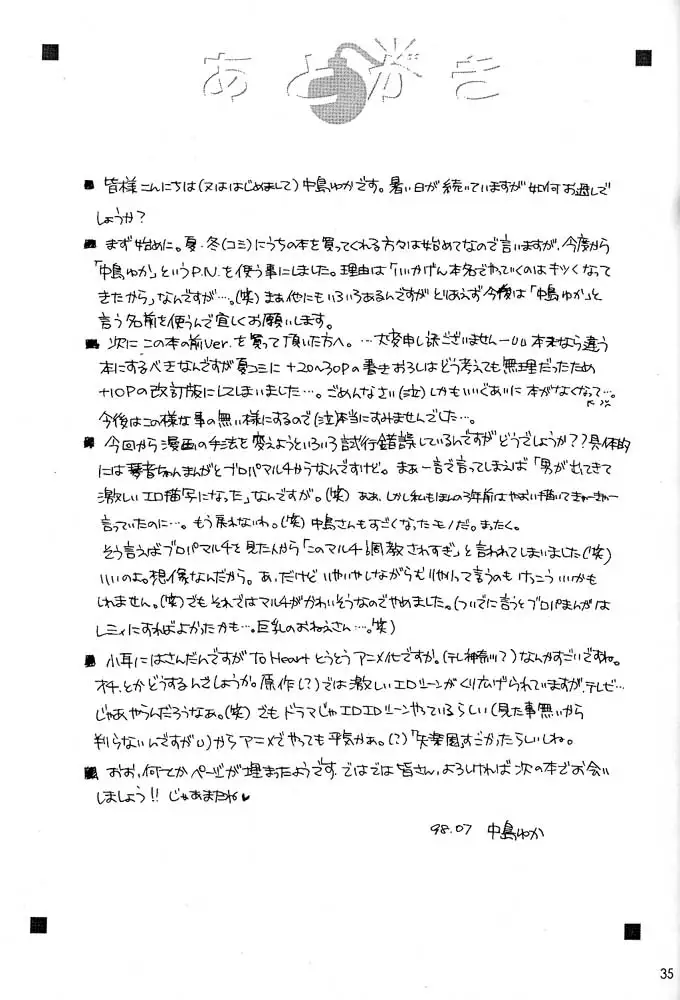 あとがき
■ 皆様こんにちは(又ははじめまして)中島ゆかです。暑い日が続いていますが如何お過しで
しょうか?
■ まず始めに。夏・冬(コミ)にうちの本を買ってくれる方々は始めてなので言いますが、今度から
「中島ゆか」というP.N.を使う事にしました。理由は「いいかげん本名でやっていくのはキツくなって
きたから」なんですが…。(笑)まぁ他にもいろいろあるんですがとりあえず今後は「中島ゆか」と
言う名前を使うんで宜しくお願いします。
■ 次にこの本の前Ver.を買って頂いた方へ。…大変申し訳ございませんー 本来なら違う
本にするべきなんですが夏コミに+20〜30Pの書きおろしはどう考えても無理だったため
+10Pの改訂版にしてしまいました…。ごめんなさい(泣)しかもいいぐあいに本がなくなって…。
今後はこの様な事の無い様にするので(泣)本当にすみませんでした…。
■ 今回から漫画の手法を変えようといろいろ試行錯誤しているんですがどうでしょうか??具体的
には琴音ちゃんまんがとブロパマルチからなんですけど。まぁ一言で言ってしまえば「男が出てきて
激しいエロ描写になった」なんですが。(笑)ああ、しかし私もほんの3年前はやおい描いてきゃーきゃー
言っていたのに…。もう戻れないわ。(笑)中島さんもすごくなったモノだ。まったく。
そう言えばブロパマルチを見た人から「このマルチ調教されすぎ」と言われてしまいました(笑)
いいのよ。想像なんだから。あ、だけどいやいやしながらむりやりって言うのもけっこういいかも
しれません。(笑)でもそれではマルチがかわいそうなのでやめました。(ついでに言うとブロパまんがは
レミィにすればよかったかも…。巨乳のおねえさん…。笑)
■ 小耳にはさんだんですがTo Heartとうとうアニメ化ですか。(テレ神奈川?)なんかすごいですね。
オチ、とかどうするんでしょうか。原作(?)では激しいエロシーンがくり広げられていますが、テレビ…
じゃあやらんだろうなぁ。(笑)でもドラマじゃエロエロシーンやっているらしい(見た事無いから
判らないんですが)からアニメでやっても平気かぁ。(?)「失楽園すごかったらしいしね。
■ おお、何てかページが埋まったようです。ではでは皆さん、よろしければ次の本でお会い
しましょう!!じゃあまたね♥
98.07 中島ゆか
35